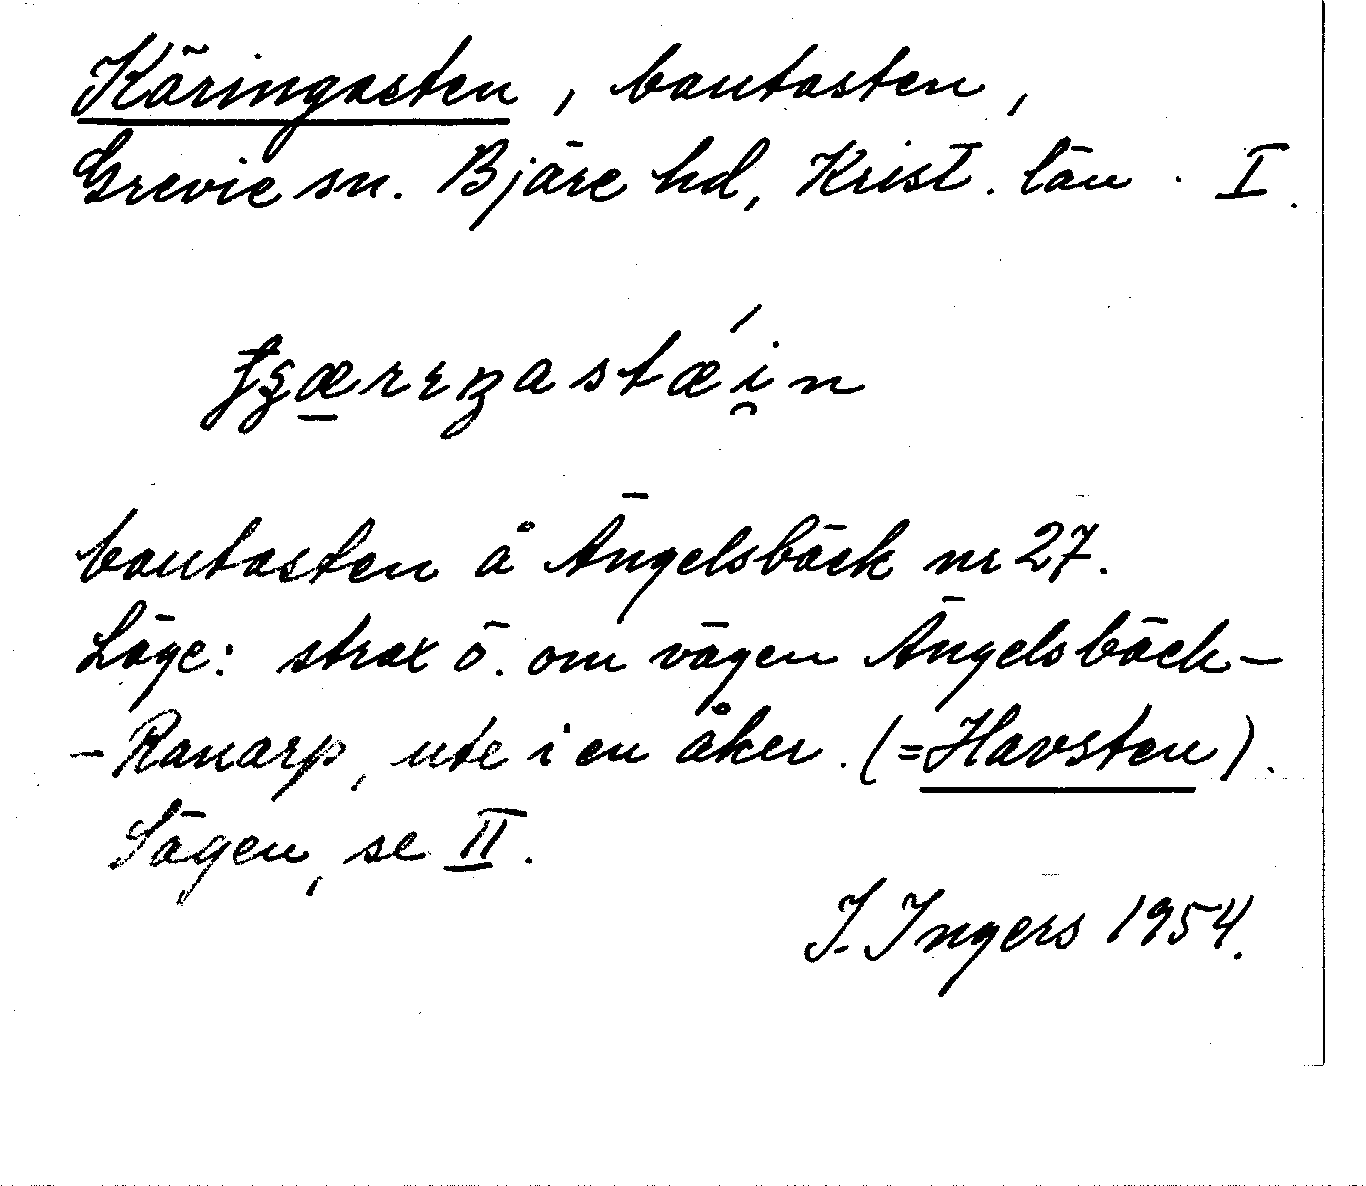 Käringasten, bautasten,
Grevie sn. Bjäre hd, Krist. län. I.
bautasten å Ängelsbäck nr 27.
Läge: strax ö. om vägen Ängelsbäck-
-Ranarp, ute i en åker. (=Havsten).
Sägen, se II.
I. Ingers 1954.